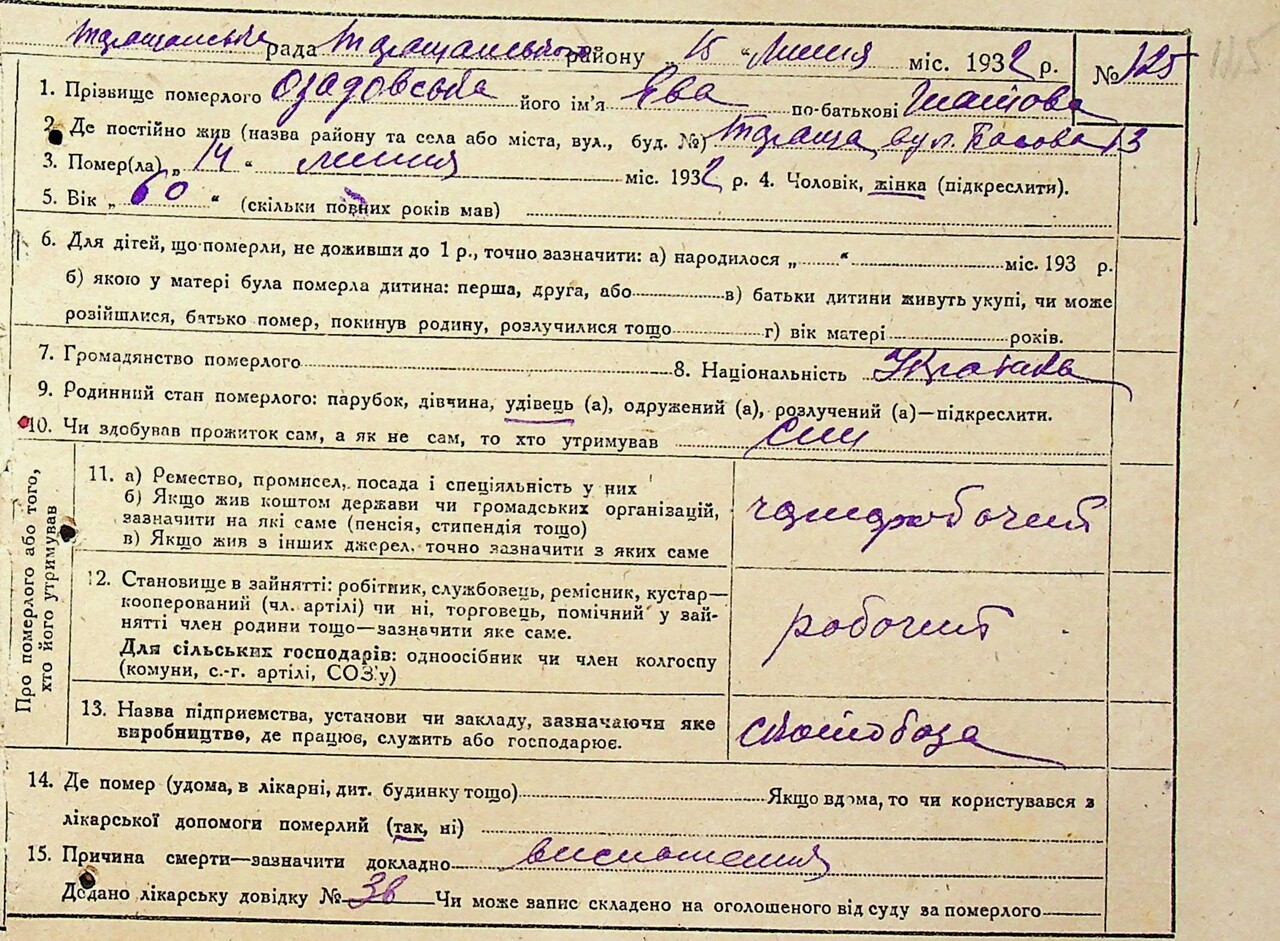 Таращанська рада Таращанського району „ 15 “ липня міс. 1932 р. № 125
1. Прізвище померлого Озадовська його ім'я Ева по-батькові
2. Де постійно жив (назва району та села або міста, вул., буд. №) Тараща, вул. 13
3. Помер(ла) „ 14 “ липня міс. 1932 р. 4. Чоловік, жінка (підкреслити).
5. Вік „ 60 “ (скільки повних років мав)
6. Для дітей, що померли, не доживши до 1 р., точно зазначити: а) народилося „ “ міс. 193 р.
б) якою у матері була померла дитина: перша, друга, або в) батьки дитини живуть укупі, чи може
розійшлися, батько помер, покинув родину, розлучилися тощо г) вік матері років.
7. Громадянство померлого 8. Національність Українка
9. Родинний стан померлого: парубок, дівчина, удівець (а), одружений (а), розлучений (а)—підкреслити.
10. Чи здобував прожиток сам, а як не сам, то хто утримував син
Про померлого або того,
хто його утримував
11. а) Ремество, промисел, посада і спеціяльність у них
б) Якщо жив коштом держави чи громадських організацій,
зазначити на які саме (пенсія, стипендія тощо)
в) Якщо жив з інших джерел, точно зазначити з яких саме
чорноробочий
12. Становище в зайнятті: робітник, службовець, ремісник, кустар—
кооперований (чл. артілі) чи ні, торговець, помічний у зай-
нятті член родини тощо—зазначити яке саме.
Для сільських господарів: одноосібник чи член колгоспу
(комуни, с.-г. артілі, СОЗ'у)
робочий
13. Назва підприємства, установи чи закладу, зазначаючи яке
виробництво, де працює, служить або господарює.
скотобаза
14. Де помер (удома, в лікарні, дит. будинку тощо) Якщо вдома, то чи користувався з
лікарської допомоги померлий (так, ні)
15. Причина смерти—зазначити докладно виснаження
Додано лікарську довідку № 38 Чи може запис складено на оголошеного від суду за померлого